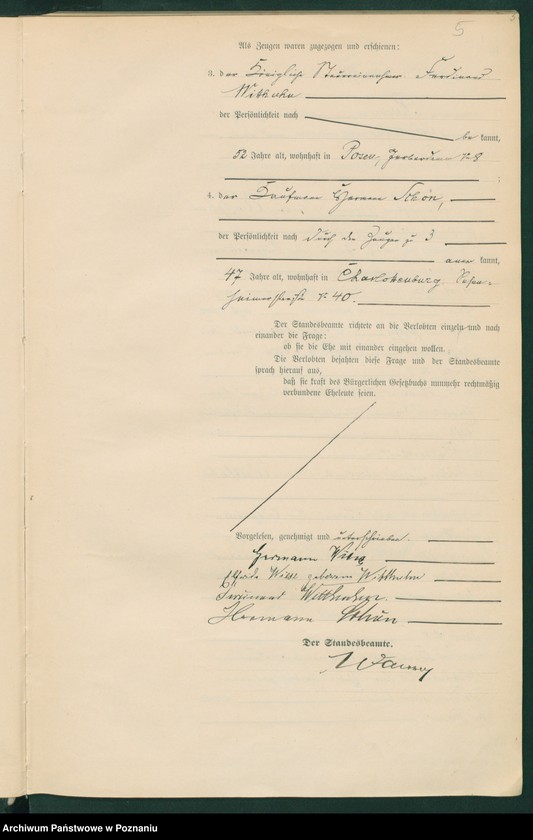 5
Als Zeugen waren zugezogen und erschienen:
3. der Königliche Steuereinnehmer Ferdinand
der Persönlichkeit nach
be kannt,
52 Jahre alt, wohnhaft in Posen,
4. der Kaufmann Hermann Schön,
der Persönlichkeit nach durch den Zeugen zu 3
aner kannt,
47 Jahre alt, wohnhaft in Charlottenburg,
40.
Der Standesbeamte richtete an die Verlobten einzeln und nach
einander die Frage:
ob sie die Ehe mit einander eingehen wollen.
Die Verlobten bejahten diese Frage und der Standesbeamte
sprach hierauf aus,
daß sie kraft des Bürgerlichen Gesetzbuchs nunmehr rechtmäßig
verbundene Eheleute seien.
Vorgelesen, genehmigt und unterschrieben.
Hermann
geborene
Ferdinand
Hermann Schön
Der Standesbeamte.
Archiwum Państwowe w Poznaniu